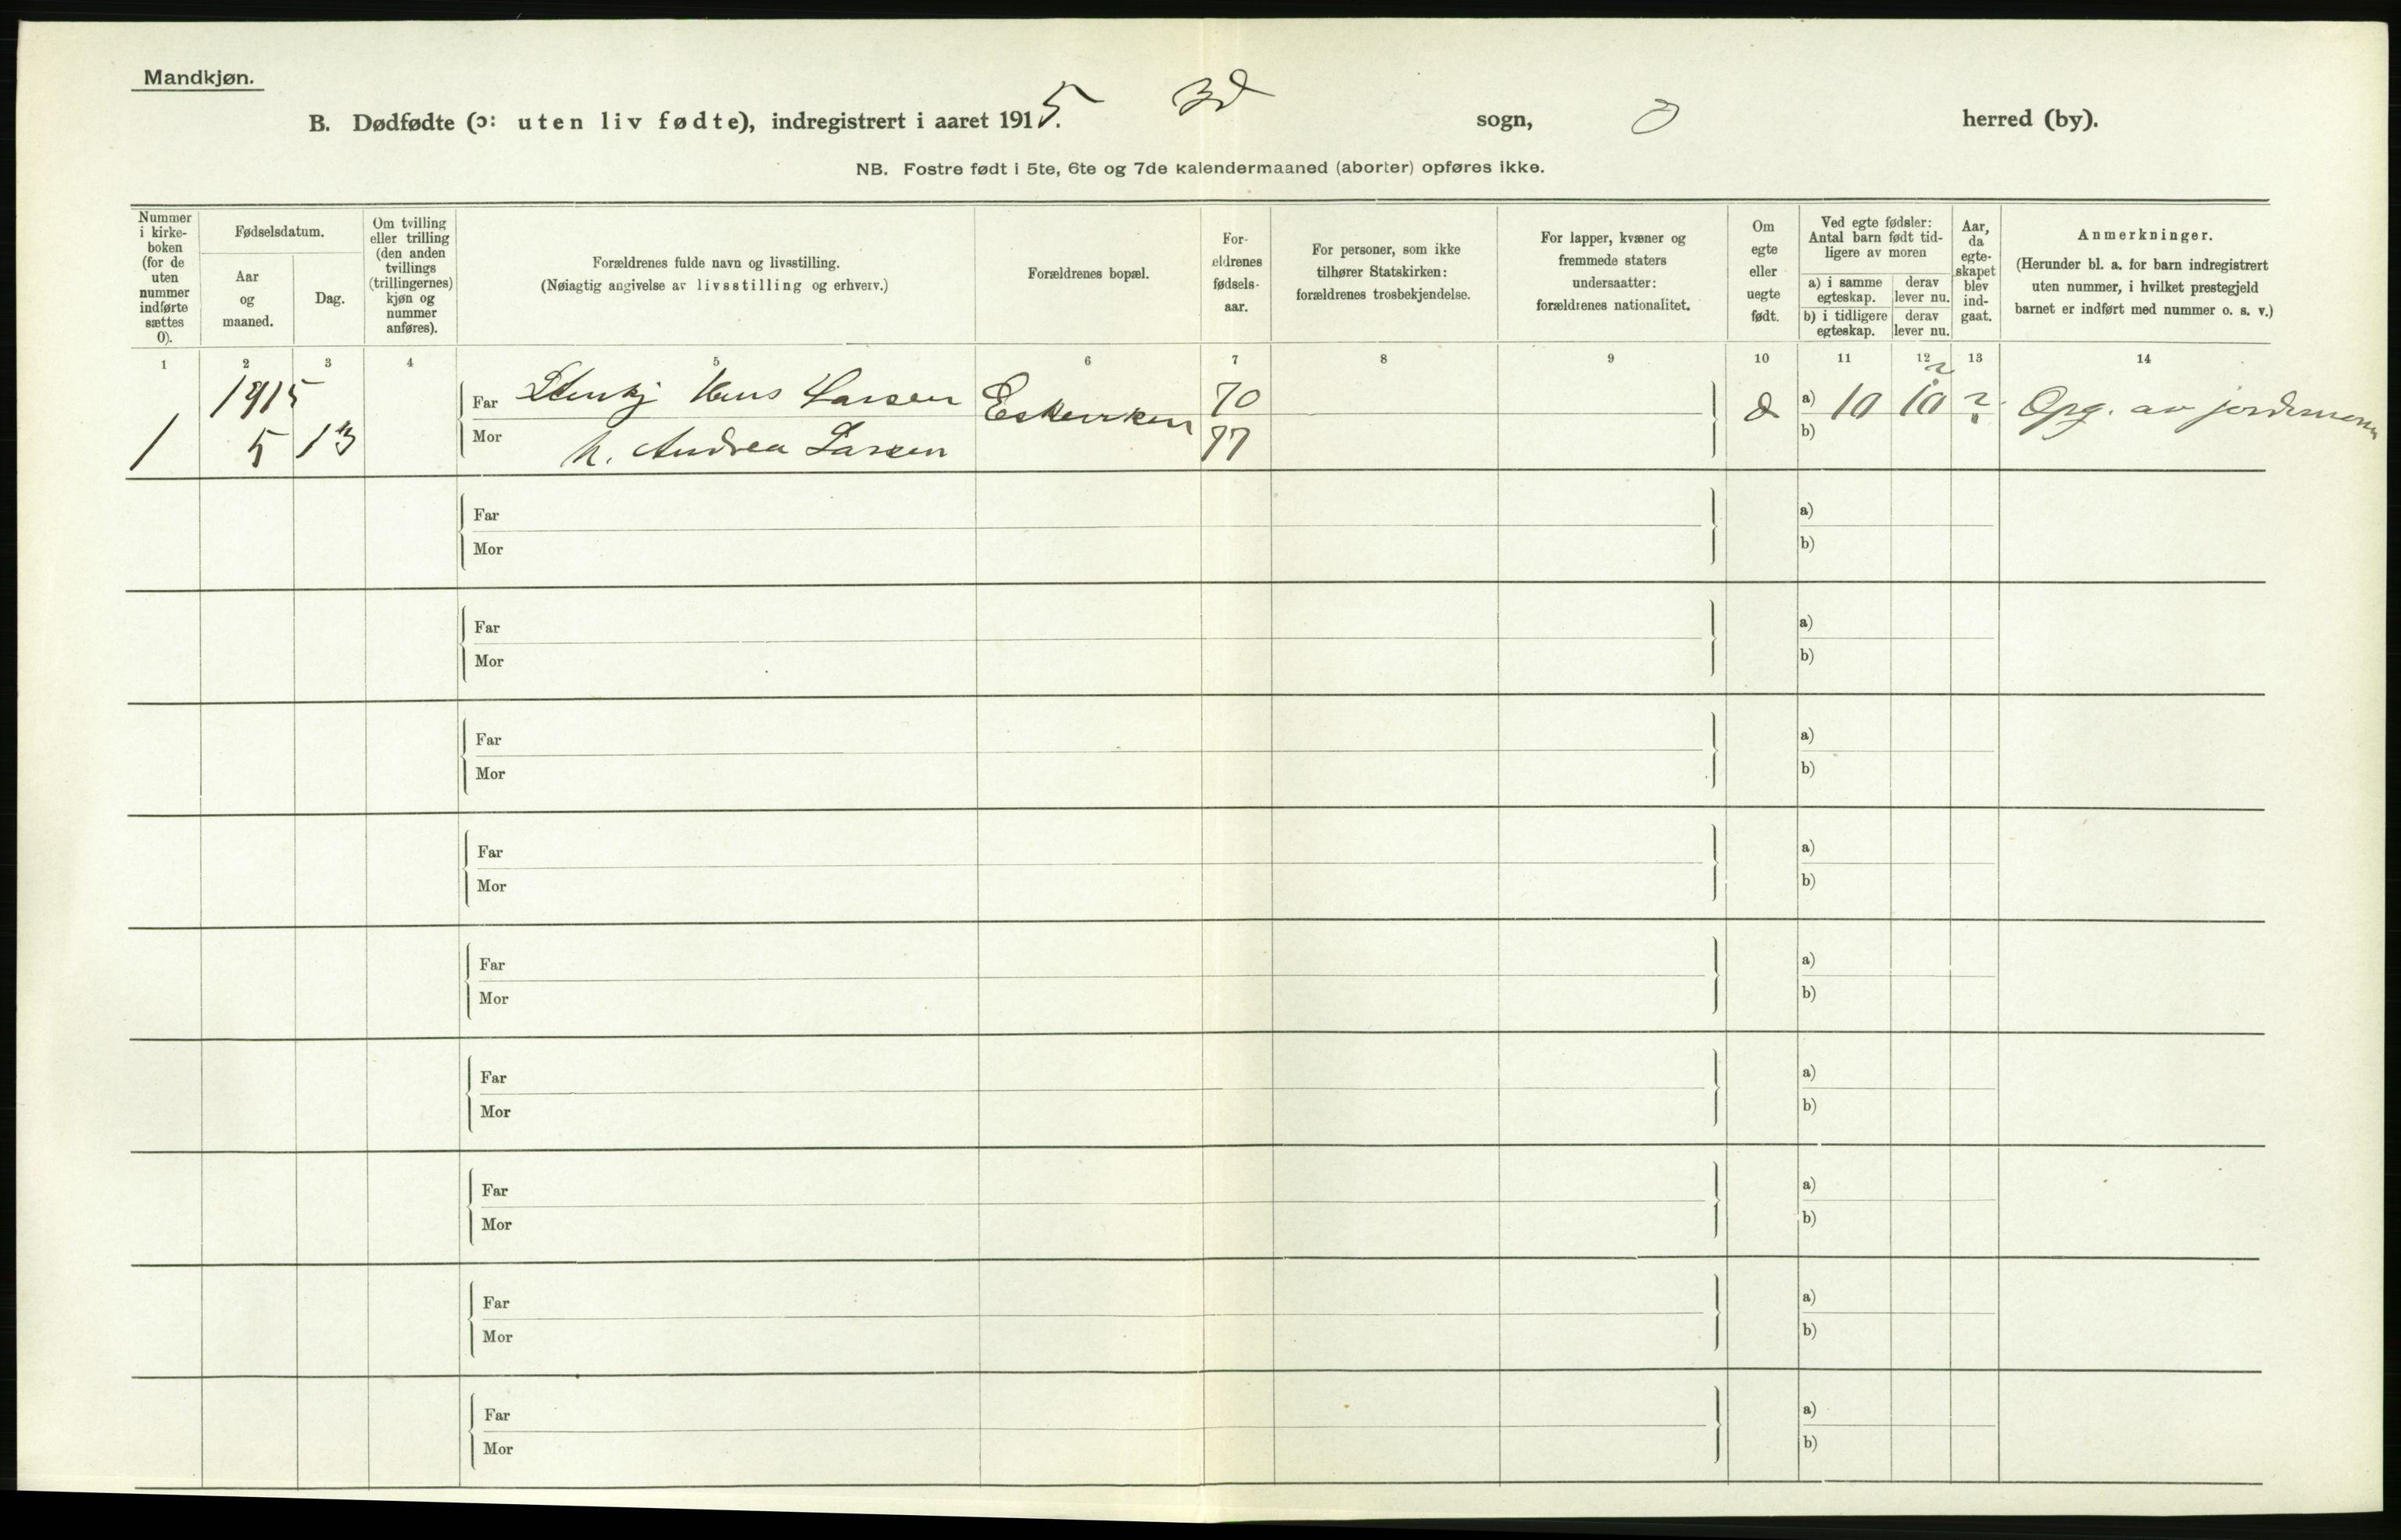 Mandkjøn.
B. Dødfødte (ɔ: uten liv fødte), indregistrert i aaret 1915. sogn, herred (by).
NB. Fostre født i 5te, 6te og 7de kalendermaaned (aborter) opføres ikke.
Nummer
i kirke-
boken
(for de
uten
nummer
indførte
sættes
0).
Fødselsdatum.
Aar
og
maaned.
Dag.
Om tvilling
eller trilling
(den anden
tvillings
(trillingernes)
kjøn og
nummer
anføres).
Forældrenes fulde navn og livsstilling.
(Nøiagtig angivelse av livsstilling og erhverv.)
Forældrenes bopæl.
For-
ældrenes
fødsels-
aar.
For personer, som ikke
tilhører Statskirken:
forældrenes trosbekjendelse.
For lapper, kvæner og
fremmede staters
undersaatter:
forældrenes nationalitet.
Om
egte
eller
uegte
født.
Ved egte fødsler:
Antal barn født tid-
ligere av moren
a) i samme
egteskap.
derav
lever nu.
b) i tidligere
egteskap.
derav
lever nu.
Aar,
da
egte-
skapet
blev
ind-
gaat.
Anmerkninger.
(Herunder bl. a. for barn indregistrert
uten nummer, i hvilket prestegjeld
barnet er indført med nummer o. s. v.)
1 2 3 4 5 6 7 8 9 10 11 12 13 14
1915 Far Hans Larsen 70 a) 10 10 ? Opg. av jordemoren
1 5 13 Mor h. Andrea Larsen 77 b)
Far a)
Mor b)
Far a)
Mor b)
Far a)
Mor b)
Far a)
Mor b)
Far a)
Mor b)
Far a)
Mor b)
Far a)
Mor b)
Far a)
Mor b)
Far a)
Mor b)